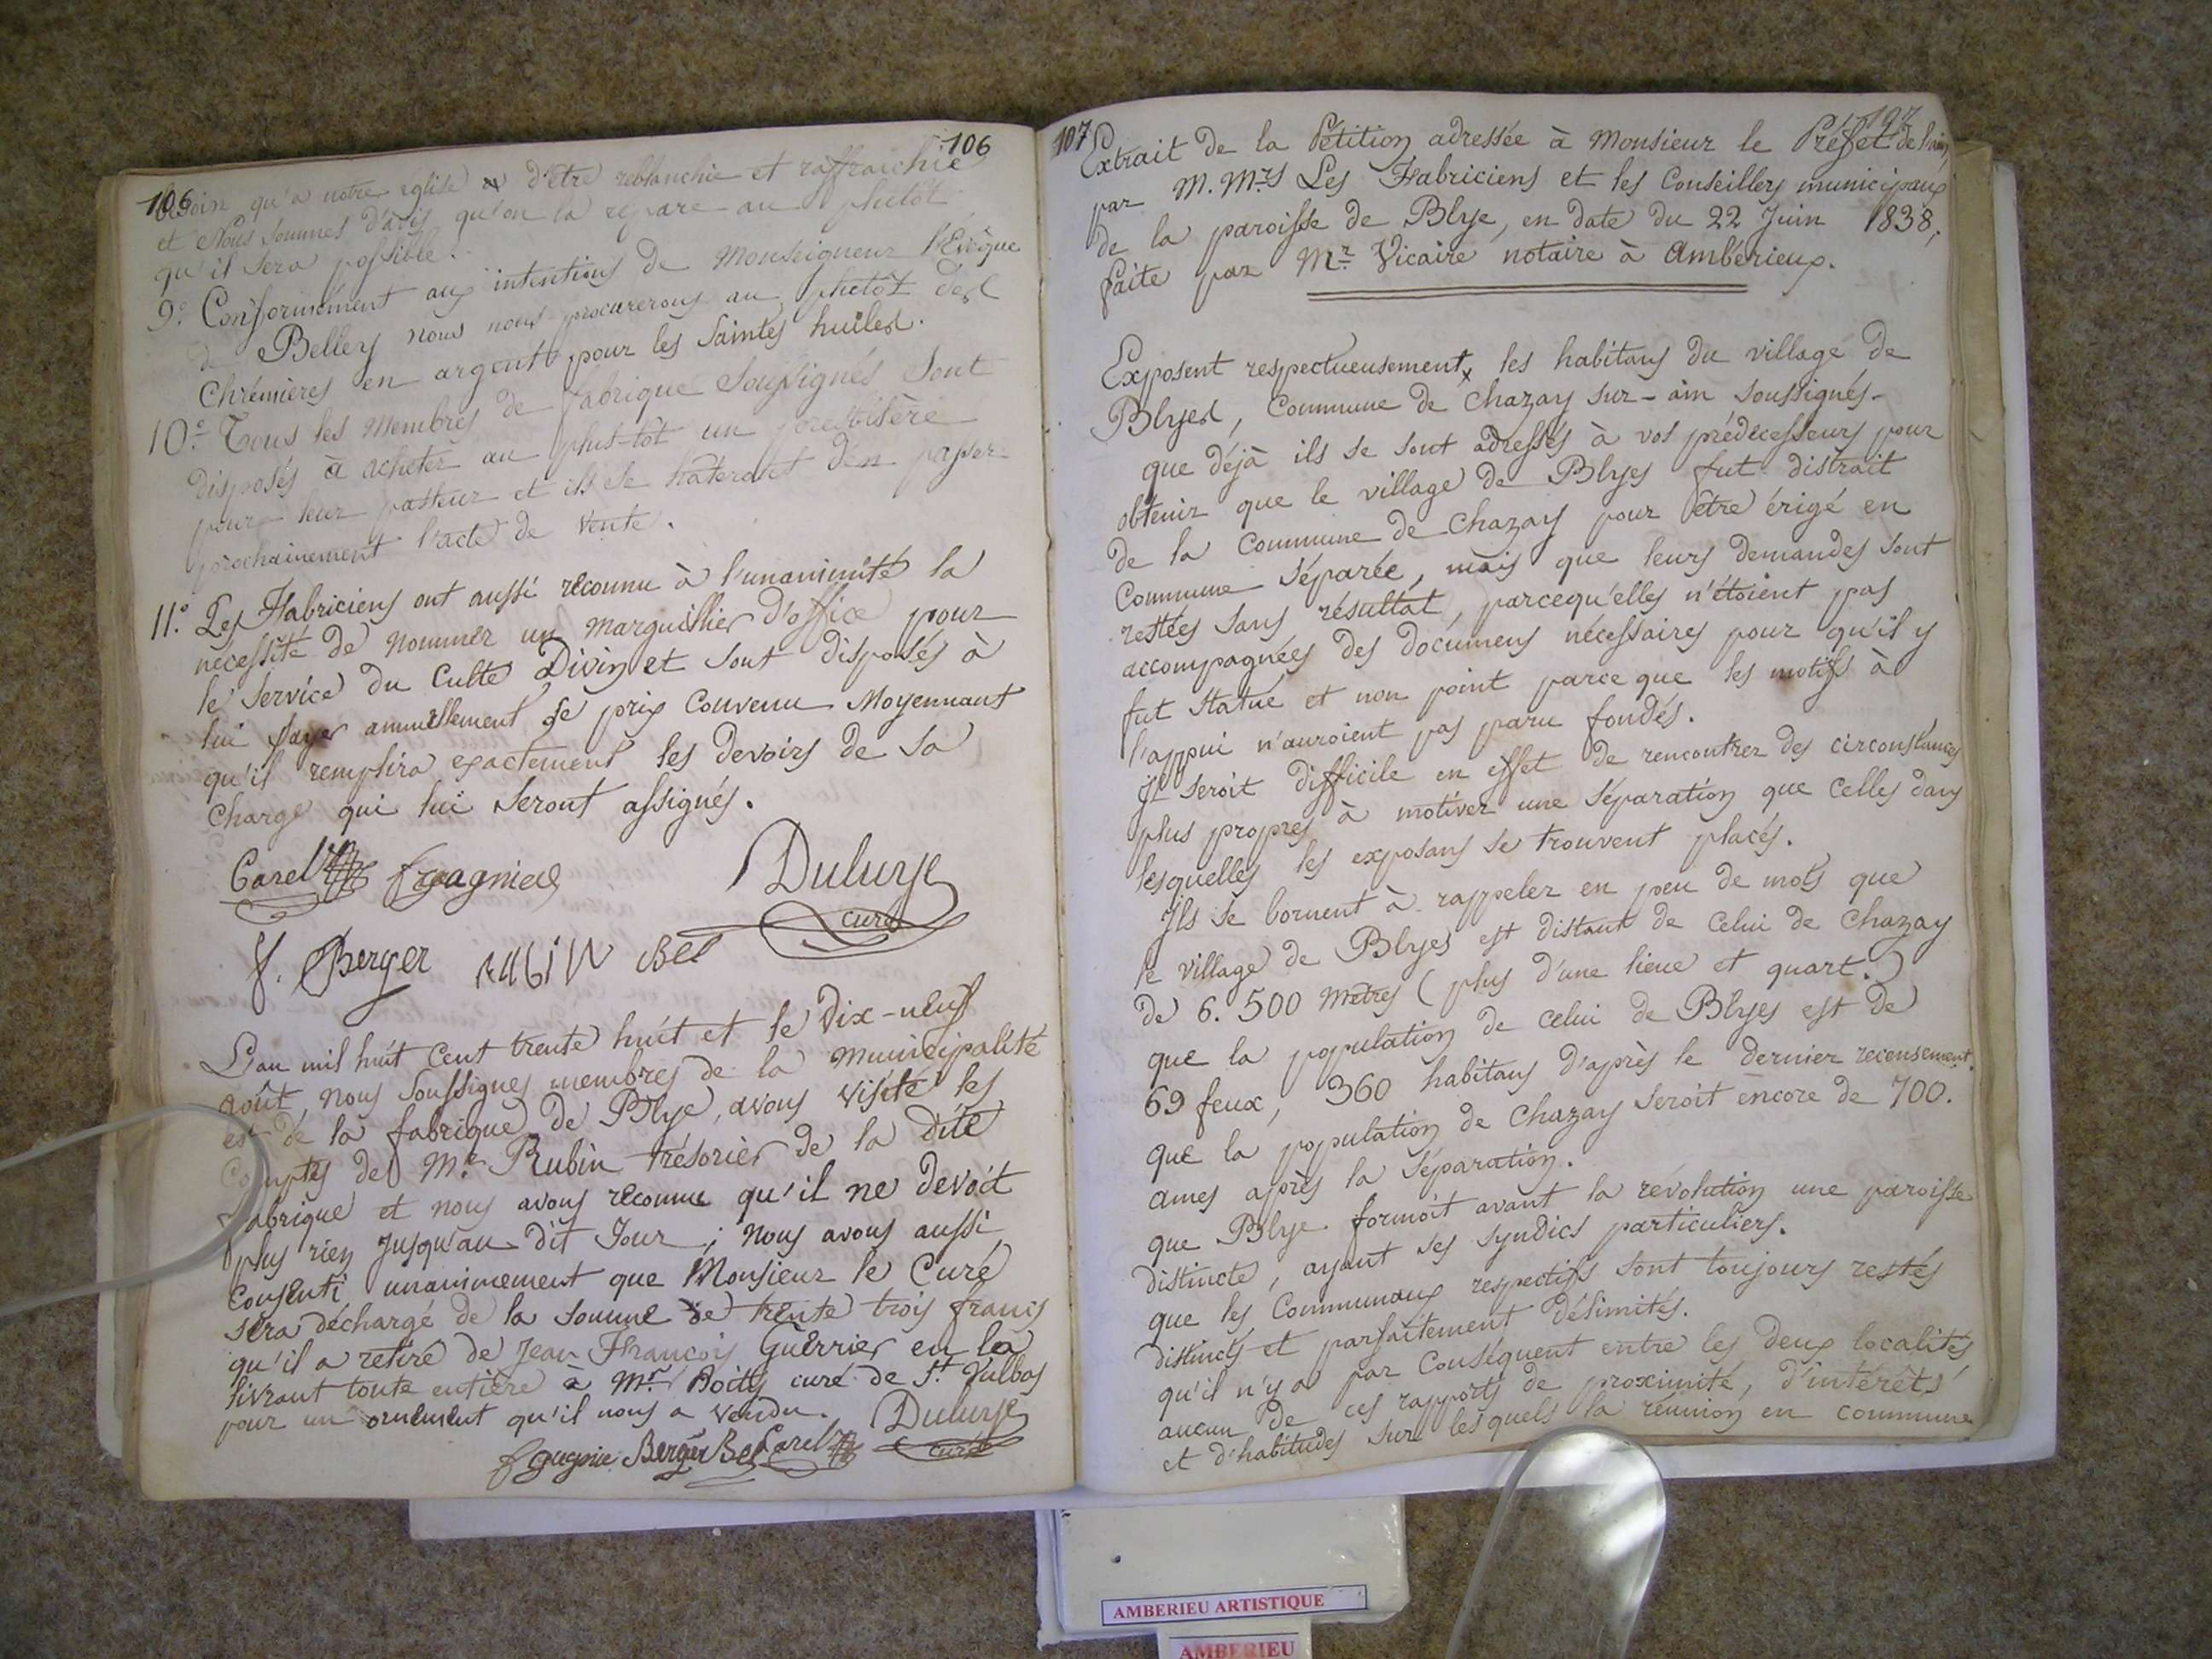 106
106
besoin qu'a notre église d'être reblanchie et raffraichie
et Nous sommes d'avis qu'on la répare au plutôt
qu'il sera possible.
9.° Conformément aux intentions de Monseigneur l'Evêque
de Belley nous nous procurerons au plutôt des
Chrémières en argent pour les Saintes huiles.
10.° Tous les Membres de fabrique Soussignés Sont
disposés à acheter au plus-tôt un presbitère
pour leur pasteur et ils se hâteront d'en passer
prochainement l'acte de Vente.
11.° Les Fabriciens ont aussi réconnu à l'unanimité la
nécessité de nommer un marguillier d'office pour
le Service du Culte Divin et sont disposés à
lui payer annuellement le prix Convenu Moyennant
qu'il remplira exactement les devoirs de sa
Charge qui lui Seront assignés.
Carel fgagniere Duluye
curé
f. Berger RUBIN Bel
L'an mil huit Cent trente huit et le Dix-neuf
août, nous Soussignes membres de la Municipalité
et de la fabrique de Blye, avons visité les
Comptes de Mr Rubin trésorier de la dite
fabrique et nous avons reconnu qu'il ne devoit
plus rien jusqu'au dit Jour ; nous avons aussi
consenti unanimement que Monsieur le Curé
sera déchargé de la Somme de trente trois francs
qu'il a retiré de Jean François Guerrier en la
livrant toute entière à Mr curé de St. Vulbas
pour un ornement qu'il nous a vendu. Duluye
Berger Bel Carel curé
107
107
Extrait de la Pétition adressée à Monsieur le Préfet de l'ain,
par M. Mrs Les Fabriciens et les Conseillers municipaux
de la paroisse de Blye, en date du 22 Juin 1838,
faite par Mr Vicaire notaire à Ambérieux.
Exposent respectueusement les habitans du village de
Blyes, Commune de Chazay sur-ain soussignés-
que déjà ils se sont adressés à vos prédécesseurs pour
obtenir que le village de Blyes fut distrait
de la Commune de Chazay pour être érigé en
Commune Séparée, mais que leurs demandes sont
restées sans résultat, parcequ'elles n'étoient pas
accompagnées des documens nécessaires pour qu'il y
fut statué et non point parce que les motifs à
l'appui n'auroient pas paru fondés.
Il seroit difficile en effet de rencontrer des circonstances
plus propres à motiver une séparation que celles dans
lesquelles les exposans se trouvent placés.
Ils se bornent à rappeler en peu de mots que
le village de Blyes est distant de Celui de Chazay
de 6.500 mètres (plus d'une lieue et quart.)
que la population de celui de Blyes est de
69 feux, 360 habitans d'après le dernier recensement.
que la population de Chazay seroit encore de 700.
ames après la Séparation.
que Blye formoit avant la révolution une paroisse
distincte, ayant ses syndics particuliers.
que les Communaux respectifs sont toujours restés
distincts et parfaitement délimités.
qu'il n'y a par Conséquent entre les deux localités
aucun de ces rapports de proximité, d'intérêts
et d'habitudes sur lesquels la réunion en commune
AMBERIEU ARTISTIQUE
AMBERIEU